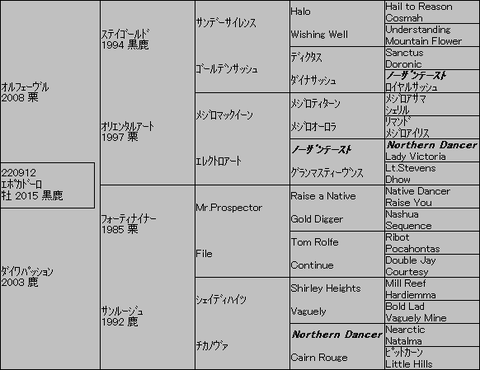 オルフェーヴル
2008 栗
220912
エポカドーロ
牡 2015 黒鹿
ダイワパッション
2003 鹿
ステイゴールド
1994 黒鹿
オリエンタルアート
1997 栗
フォーティナイナー
1985 栗
サンルージュ
1992 鹿
サンデーサイレンス
ゴールデンサッシュ
メジロマックイーン
エレクトロアート
Mr.Prospector
File
シェイディハイツ
チカノヴァ
Halo
Wishing Well
ディクタス
ダイナサッシュ
メジロティターン
メジロオーロラ
ノーザンテースト
グランマスティーヴンス
Raise a Native
Gold Digger
Tom Rolfe
Continue
Shirley Heights
Vaguely
Northern Dancer
Cairn Rouge
Hail to Reason
Cosmah
Understanding
Mountain Flower
Sanctus
Doronic
ノーザンテースト
ロイヤルサッシュ
メジロアサマ
シェリル
リマンド
メジロアイリス
Northern Dancer
Lady Victoria
Lt.Stevens
Dhow
Native Dancer
Raise You
Nashua
Sequence
Ribot
Pocahontas
Double Jay
Courtesy
Mill Reef
Hardiemma
Bold Lad
Vaguely Mine
Nearctic
Natalma
ピットカーン
Little Hills